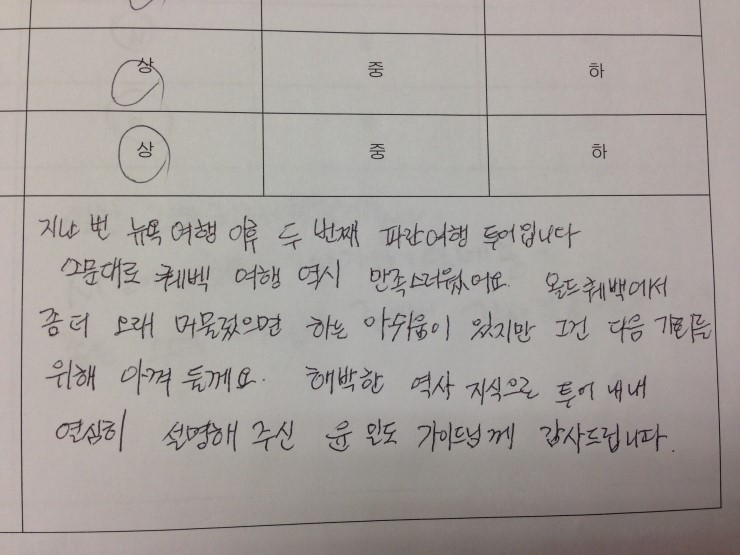 상 중 하
상 중 하
지난 번 뉴욕 여행 이후 두 번째 파란여행 투어입니다
소문대로 퀘벡 여행 역시 만족스러웠어요. 올드퀘백에서
좀 더 오래 머물렀으면 하는 아쉬움이 있지만 그건 다음 기회를
위해 아껴 둘게요. 해박한 역사 지식으로 투어 내내
열심히 설명해 주신 윤 인도 가이드님께 감사드립니다.